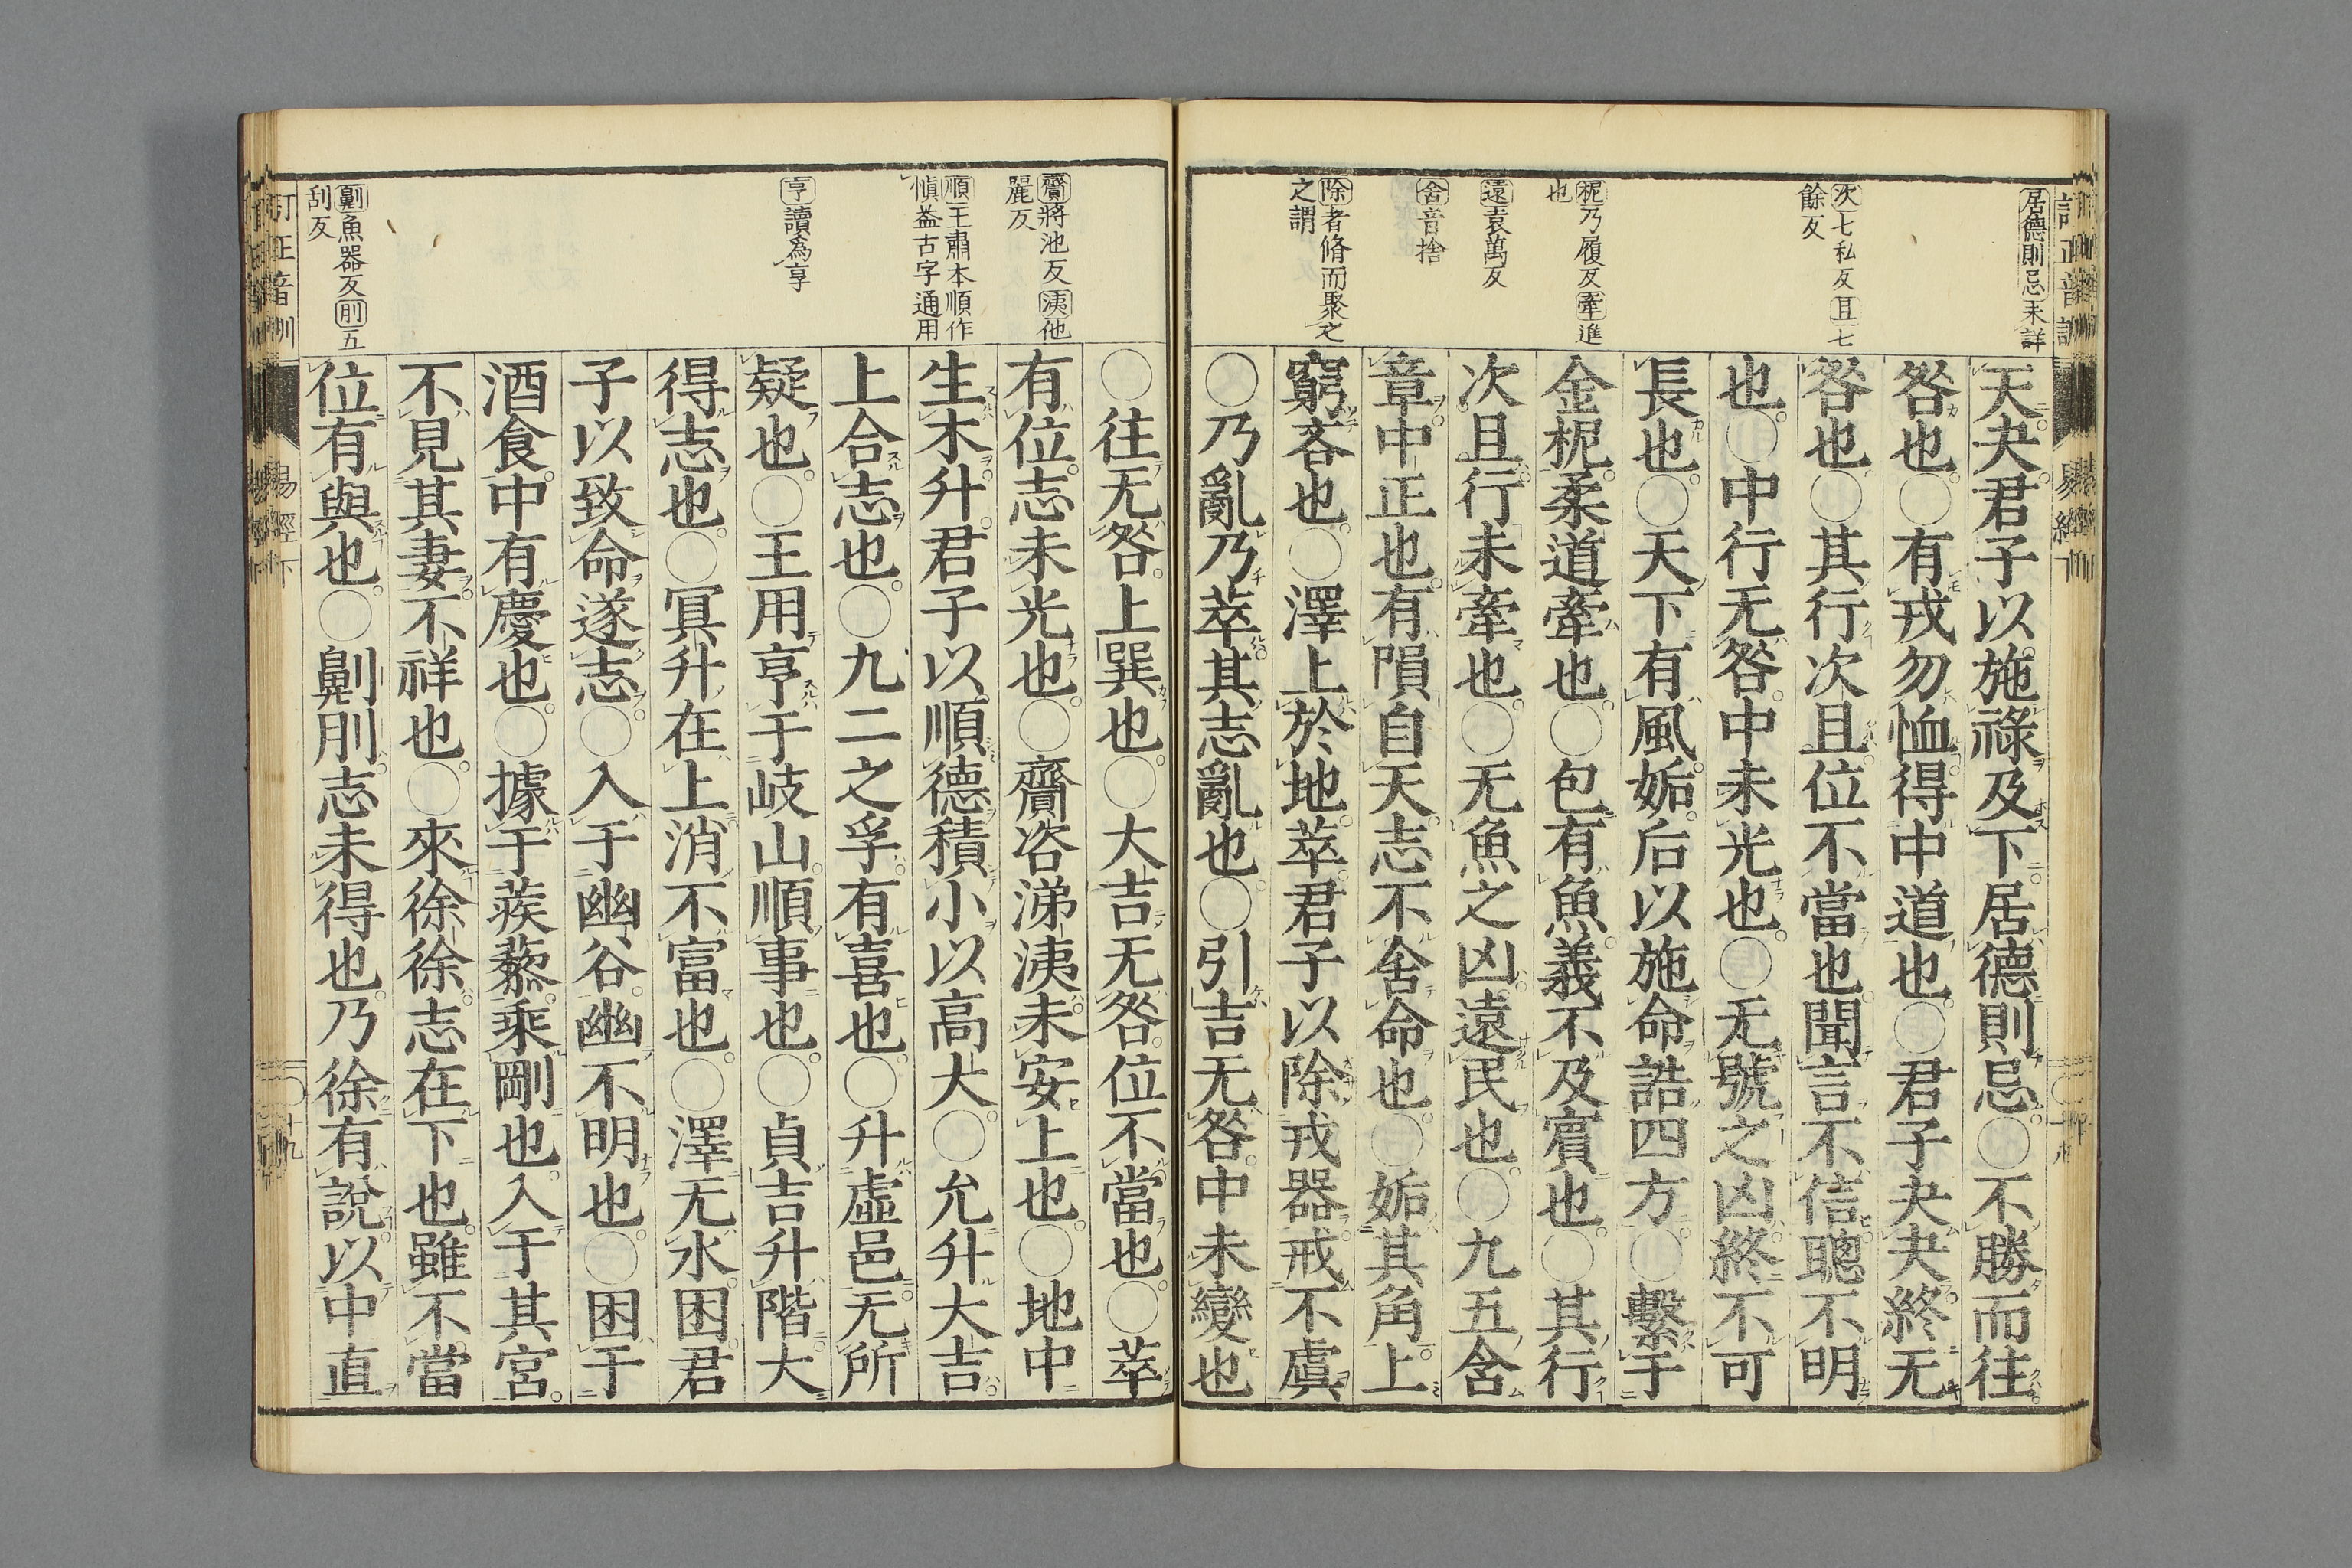 居德則忌未詳
次七私反且七
餘反
柅乃履反牽進
也
遠袁萬反
舍音捨
除者脩而聚之
之謂
天夬君子以施祿及下居德則忌○不勝而往
咎也○有戎勿恤得中道也○君子夬夬終无
咎也○其行次且位不當也聞言不信聰不明
也○中行无咎中未光也○无號之凶終不可
長也○天下有風姤后以施命誥四方○繫于
金柅柔道牽也○包有魚義不及賓也○其行
次且行未牽也○无魚之凶遠民也○九五含
章中正也有隕自天志不舍命也○姤其角上
窮吝也○澤上於地萃君子以除戎器戒不虞
○乃亂乃萃其志亂也○引吉无咎中未變也
齎將池反洟他
麗反
順王肅本順作
愼葢古字通用
亨讀爲享
劓魚器反刖五
刮反
○往无咎上巽也○大吉无咎位不當也○萃
有位志未光也○齎咨涕洟未安上也○地中
生木升君子以順德積小以高大○允升大吉
上合志也○九二之孚有喜也○升虛邑无所
疑也○王用亨于岐山順事也○貞吉升階大
得志也○冥升在上消不富也○澤无水困君
子以致命遂志○入于幽谷幽不明也○困于
酒食中有慶也○據于蒺藜乘剛也入于其宮
不見其妻不祥也○來徐徐志在下也雖不當
位有與也○劓刖志未得也乃徐有說以中直
易經下
十九